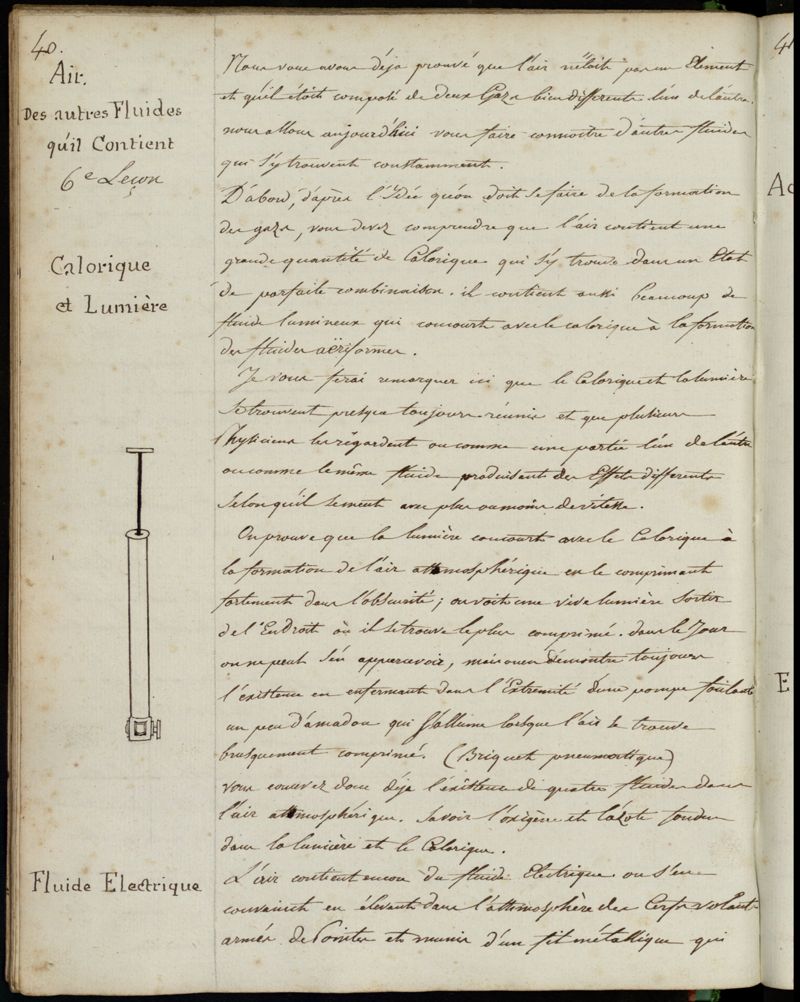 40.
Air.
Des autres Fluides
qu'il Contient
6e Leçon
Nous vous avons déja prouvé que l'air n'étoit pas un Element
et qu'il étoit composé de deux Gazs bien differents l'un de l'autre.
nous allons aujourd'hui vous faire connoitre d'autres fluides
qui s'y trouvent constamment.
D'abord, d'après l'Idée qu'on doit se faire de la formation
des gazs, vous devez comprendre que l'air contient une
Calorique
et Lumière
grande quantité de Calorique qui s'y trouve dans un Etat
de parfaite combinaison. il contient aussi beaucoup de
fluide lumineux qui concourt avec le calorique à la formation
des fluides aëriformes.
Je vous ferai remarquer ici que le Calorique et la lumière
se trouvent presque toujours réunis et que plusieurs
Physiciens les régardent ou comme une partie l'un de l'autre
ou comme le même fluide produisant des Effets differents
selon qu'il se meut avec plus ou moins de vitesse.
On prouve que la lumière concourt avec le Calorique à
la formation de l'air attmosphérique en le comprimant
fortement dans l'obscurité; on voit une vive lumière sortir
de l'Endroit où il se trouve le plus comprimé. dans le Jour
on ne peut s'en appercevoir, mais on en démontre toujours
l'existence en enfermant dans l'Extremité d'une pompe foulante
un peu d'amadou qui s'allume lorsque l'air se trouve
brusquement comprimé. (Briquet pneumatique)
vous connoissez donc déja l'éxistence de quatre fluides dans
l'air attmosphérique. savoir l'oxigène et l'azote fondus
dans la lumière et le Calorique.
Fluide Electrique
L'air contient encore du fluide Electrique. on s'en
convainct en élevant dans l'attmosphère des Cerfs volants
armés de Pointes et munis d'un fil métallique qui